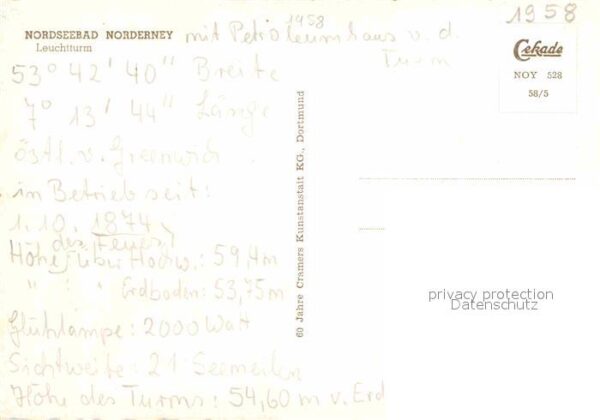 1958
1958
NORDSEEBAD NORDERNEY mit Petroleumhaus v. d.
Leuchtturm
Turm
Cekade
NOY 528
58/5
53° 42' 40" Breite
7° 13' 44" Länge
östl. v. Greenwich
in Betrieb seit:
1.10. 1874
des Feuers
Höhe über Hochw.: 59,4 m
" " Erdboden: 53,75 m
Glühlampe: 2000 Watt
Sichtweite: 21 Seemeilen
Höhe des Turms: 54,60 m v. Erd
60 Jahre Cramers Kunstanstalt KG., Dortmund
privacy protection
Datenschutz